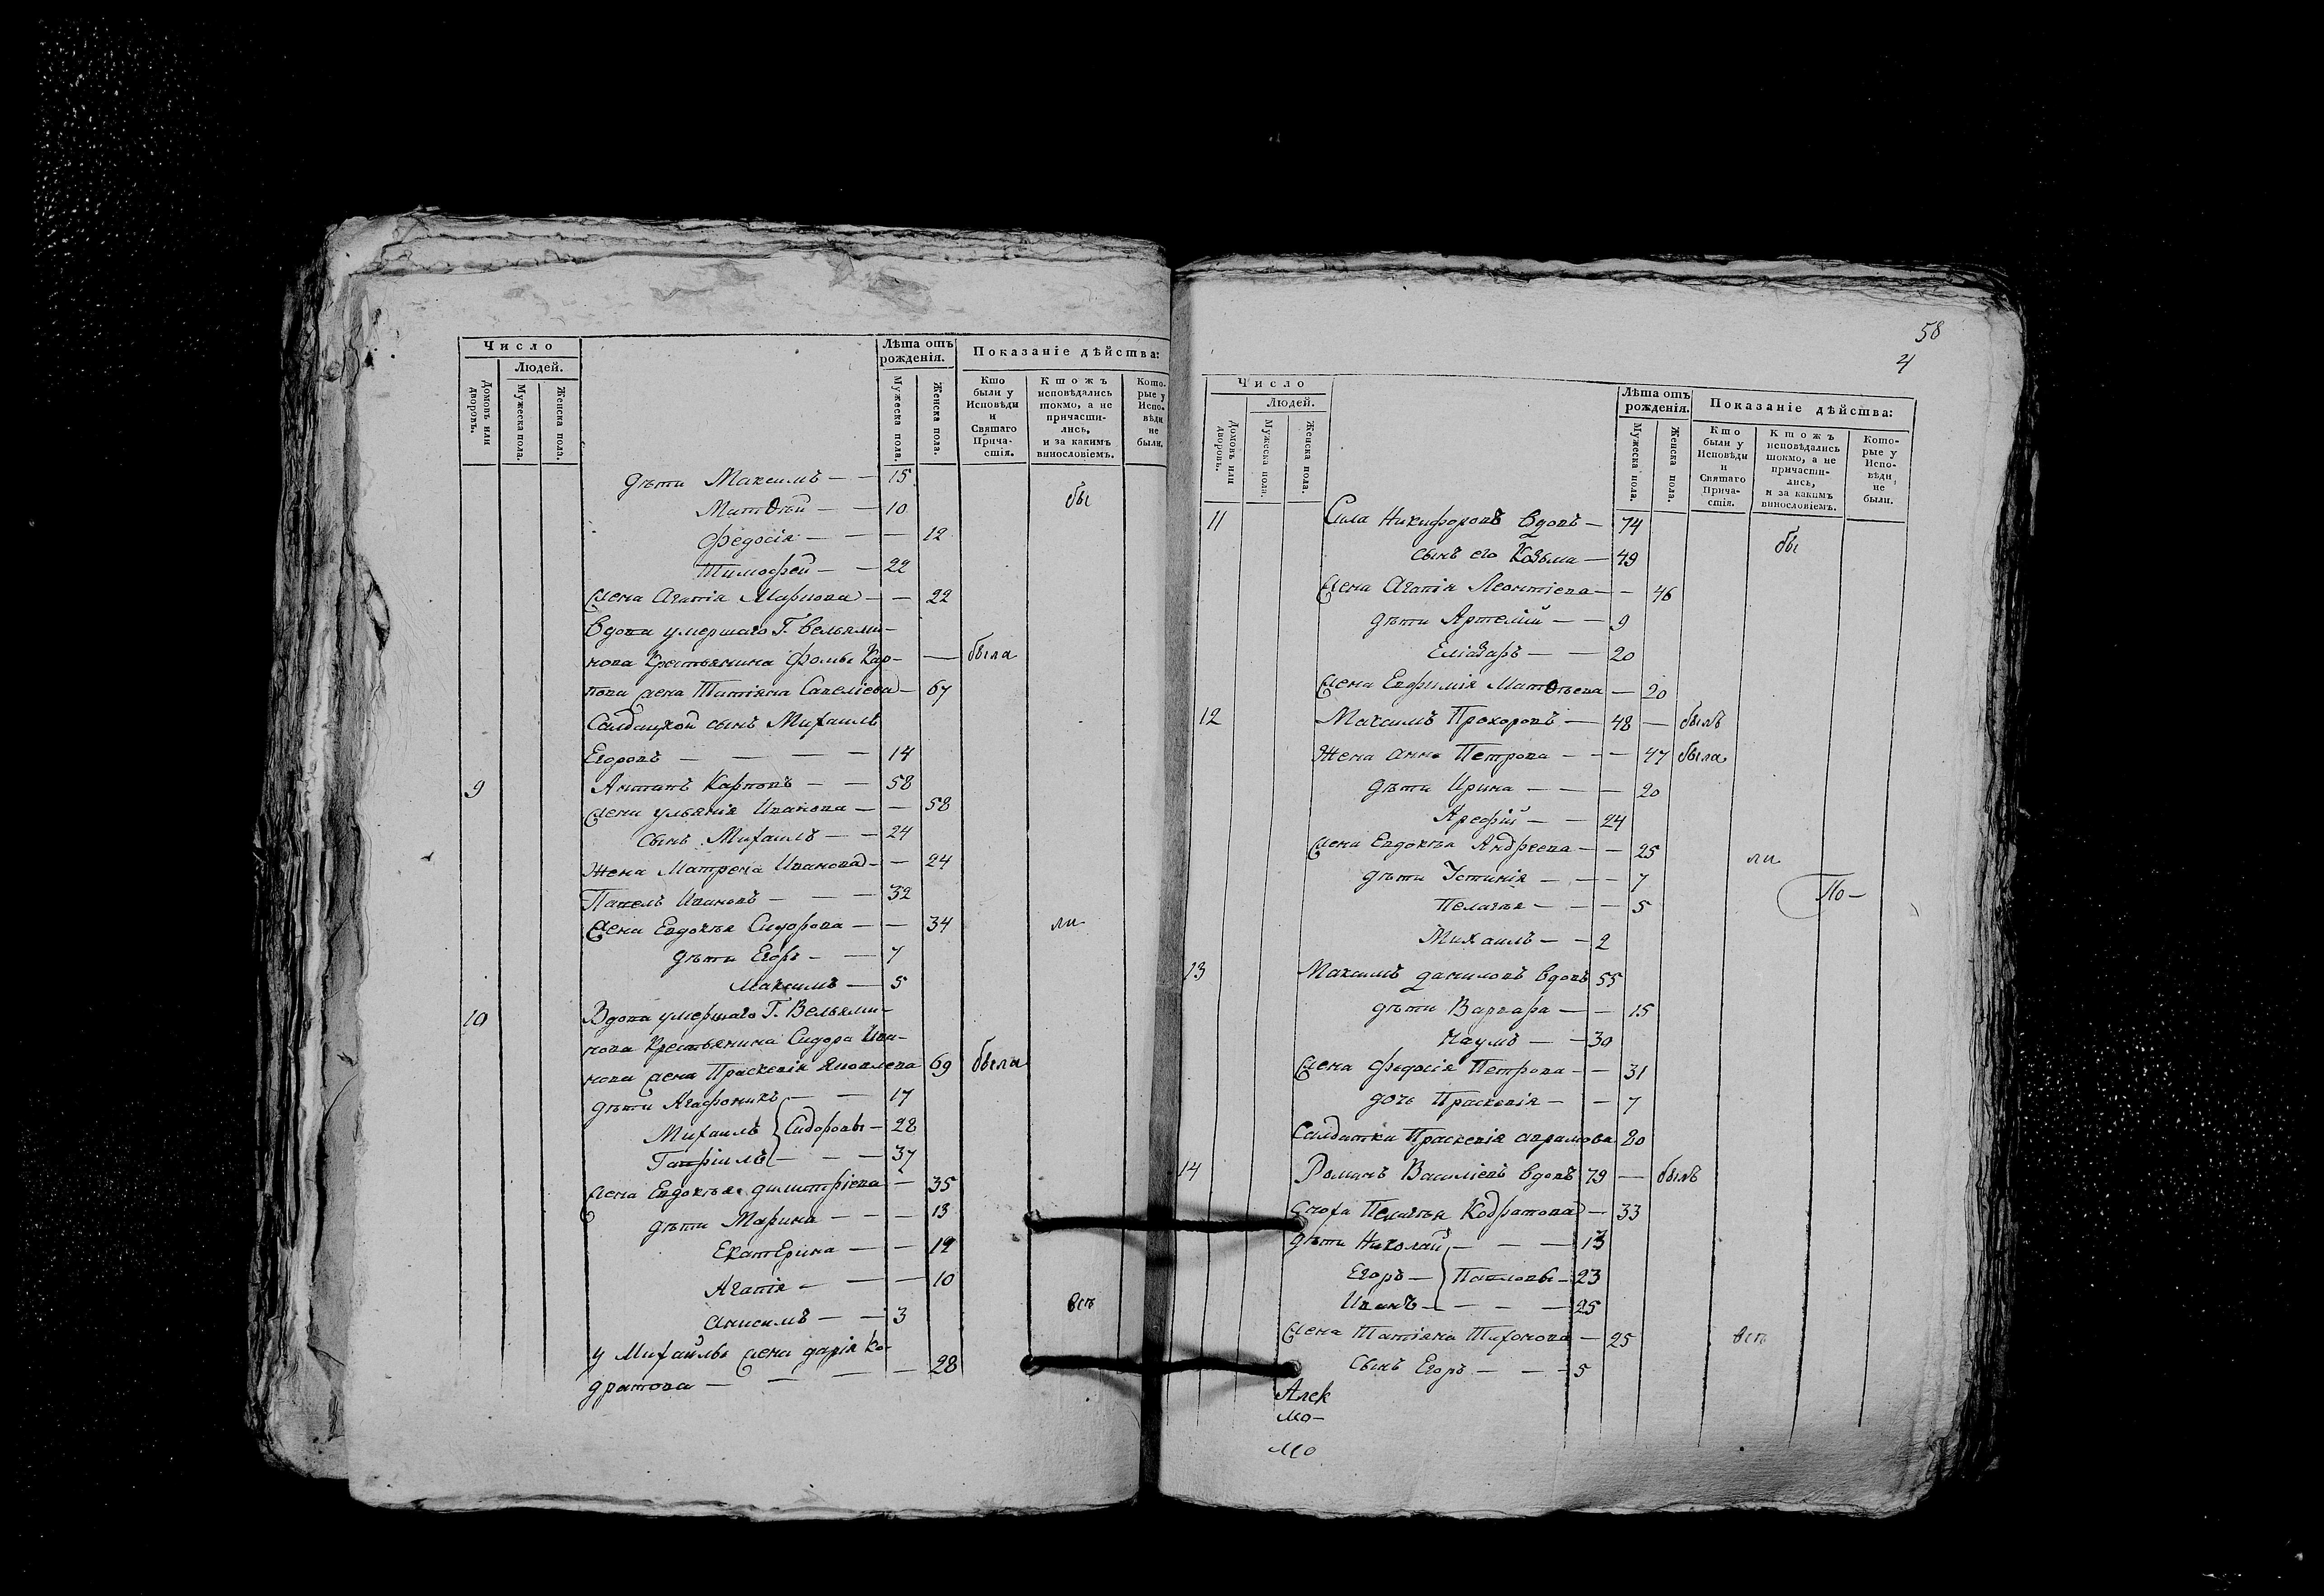 Число
Людей.
Домовъ или дворовъ.
Мужеска пола.
Женска пола.
Лѣта отъ рожденія.
Мужеска пола.
Женска пола.
Показаніе дѣйства:
Кто были у Исповѣди и Святаго Прича-стія.
Ктожъ исповѣдались токмо, а не причасти-лись, и за какимъ винословіемъ.
Кото-рые у Испо-вѣди не были.
дѣти Максимъ — — 15
Матѳѣй — — 10 бы
Федосія — — — 12
Тимофей — — 22
жена Агапія Маркова — — 22
Вдова умершаго Г. Вельями-
нова Крестьянина Фомы Кар- — была
пова жена Татіяна Савеліева — 67
Салдацкой сынъ Михаилъ
Егоровъ — — — — 14
9 Антипъ Карповъ — — 58
жена ульянія Иванова — — 58
сынъ Михаилъ — — 24
Жена Матрена Иванова — — 24
Павелъ Ивановъ — — — 32
жена Евдокѣя Сидорова — — 34 ли
дѣти Егоръ — — 7
Максимъ — 5
10 Вдова умершаго Г. Вельями-
нова Крестьянина Сидора Ива-
нова жена Праскевія Яковлева 69 была
дѣти Агафоникъ — — 17
Михаилъ } Сидоровы — 28
Гавріилъ — — — 37
жена Евдокѣя димитріева — 35
дѣти Марина — — — 13
Екатерина — — 12
Агапія — — — 10
анисимъ — — 3 всѣ
у Михайлы жена дарія Ко-
дратова — — — — 28
58
4
Число
Людей.
Домовъ или дворовъ.
Мужеска пола.
Женска пола.
Лѣта отъ рожденія.
Мужеска пола.
Женска пола.
Показаніе дѣйства:
Кто были у Исповѣди и Святаго Прича-стія.
Ктожъ исповѣдались токмо, а не причасти-лись, и за какимъ винословіемъ.
Кото-рые у Испо-вѣди не были.
11 Сила Никифоровъ вдовъ — 74
сынъ его Козьма — 49 бы
жена Агапія Леонтіева — — 46
дѣти Артемій — — 9
Еліазаръ — — 20
жена Евфимія Матѳѣева — 20
12 Максимъ Прохоровъ — 48 — былъ
Жена анна Петрова — — — 47 была
дѣти Ирина — — — 20
Арефій — — 24
жена Евдокѣя Андреева — — 25 ли
дѣти Устинія — — — 7
Пелагѣя — — — 5 По-
Михаилъ — — 2
13 Максимъ даниловъ вдовъ 55
дѣти Варвара — — 15
Наумъ — — 30
жена Федосія Петрова — — 31
дочь Праскевія — — 7
Салдатка Праскевія аврамова 80
14 Романъ Василіевъ вдовъ 79 — былъ
сноха Пелагѣя Кодратова — 33
дѣти Николай — — — 13
Егоръ — } Павловы — 23
Иванъ — — — — 25
жена Татіяна Тихонова — 25 всѣ
сынъ Егоръ — — — 5
Алек
мо-
мо